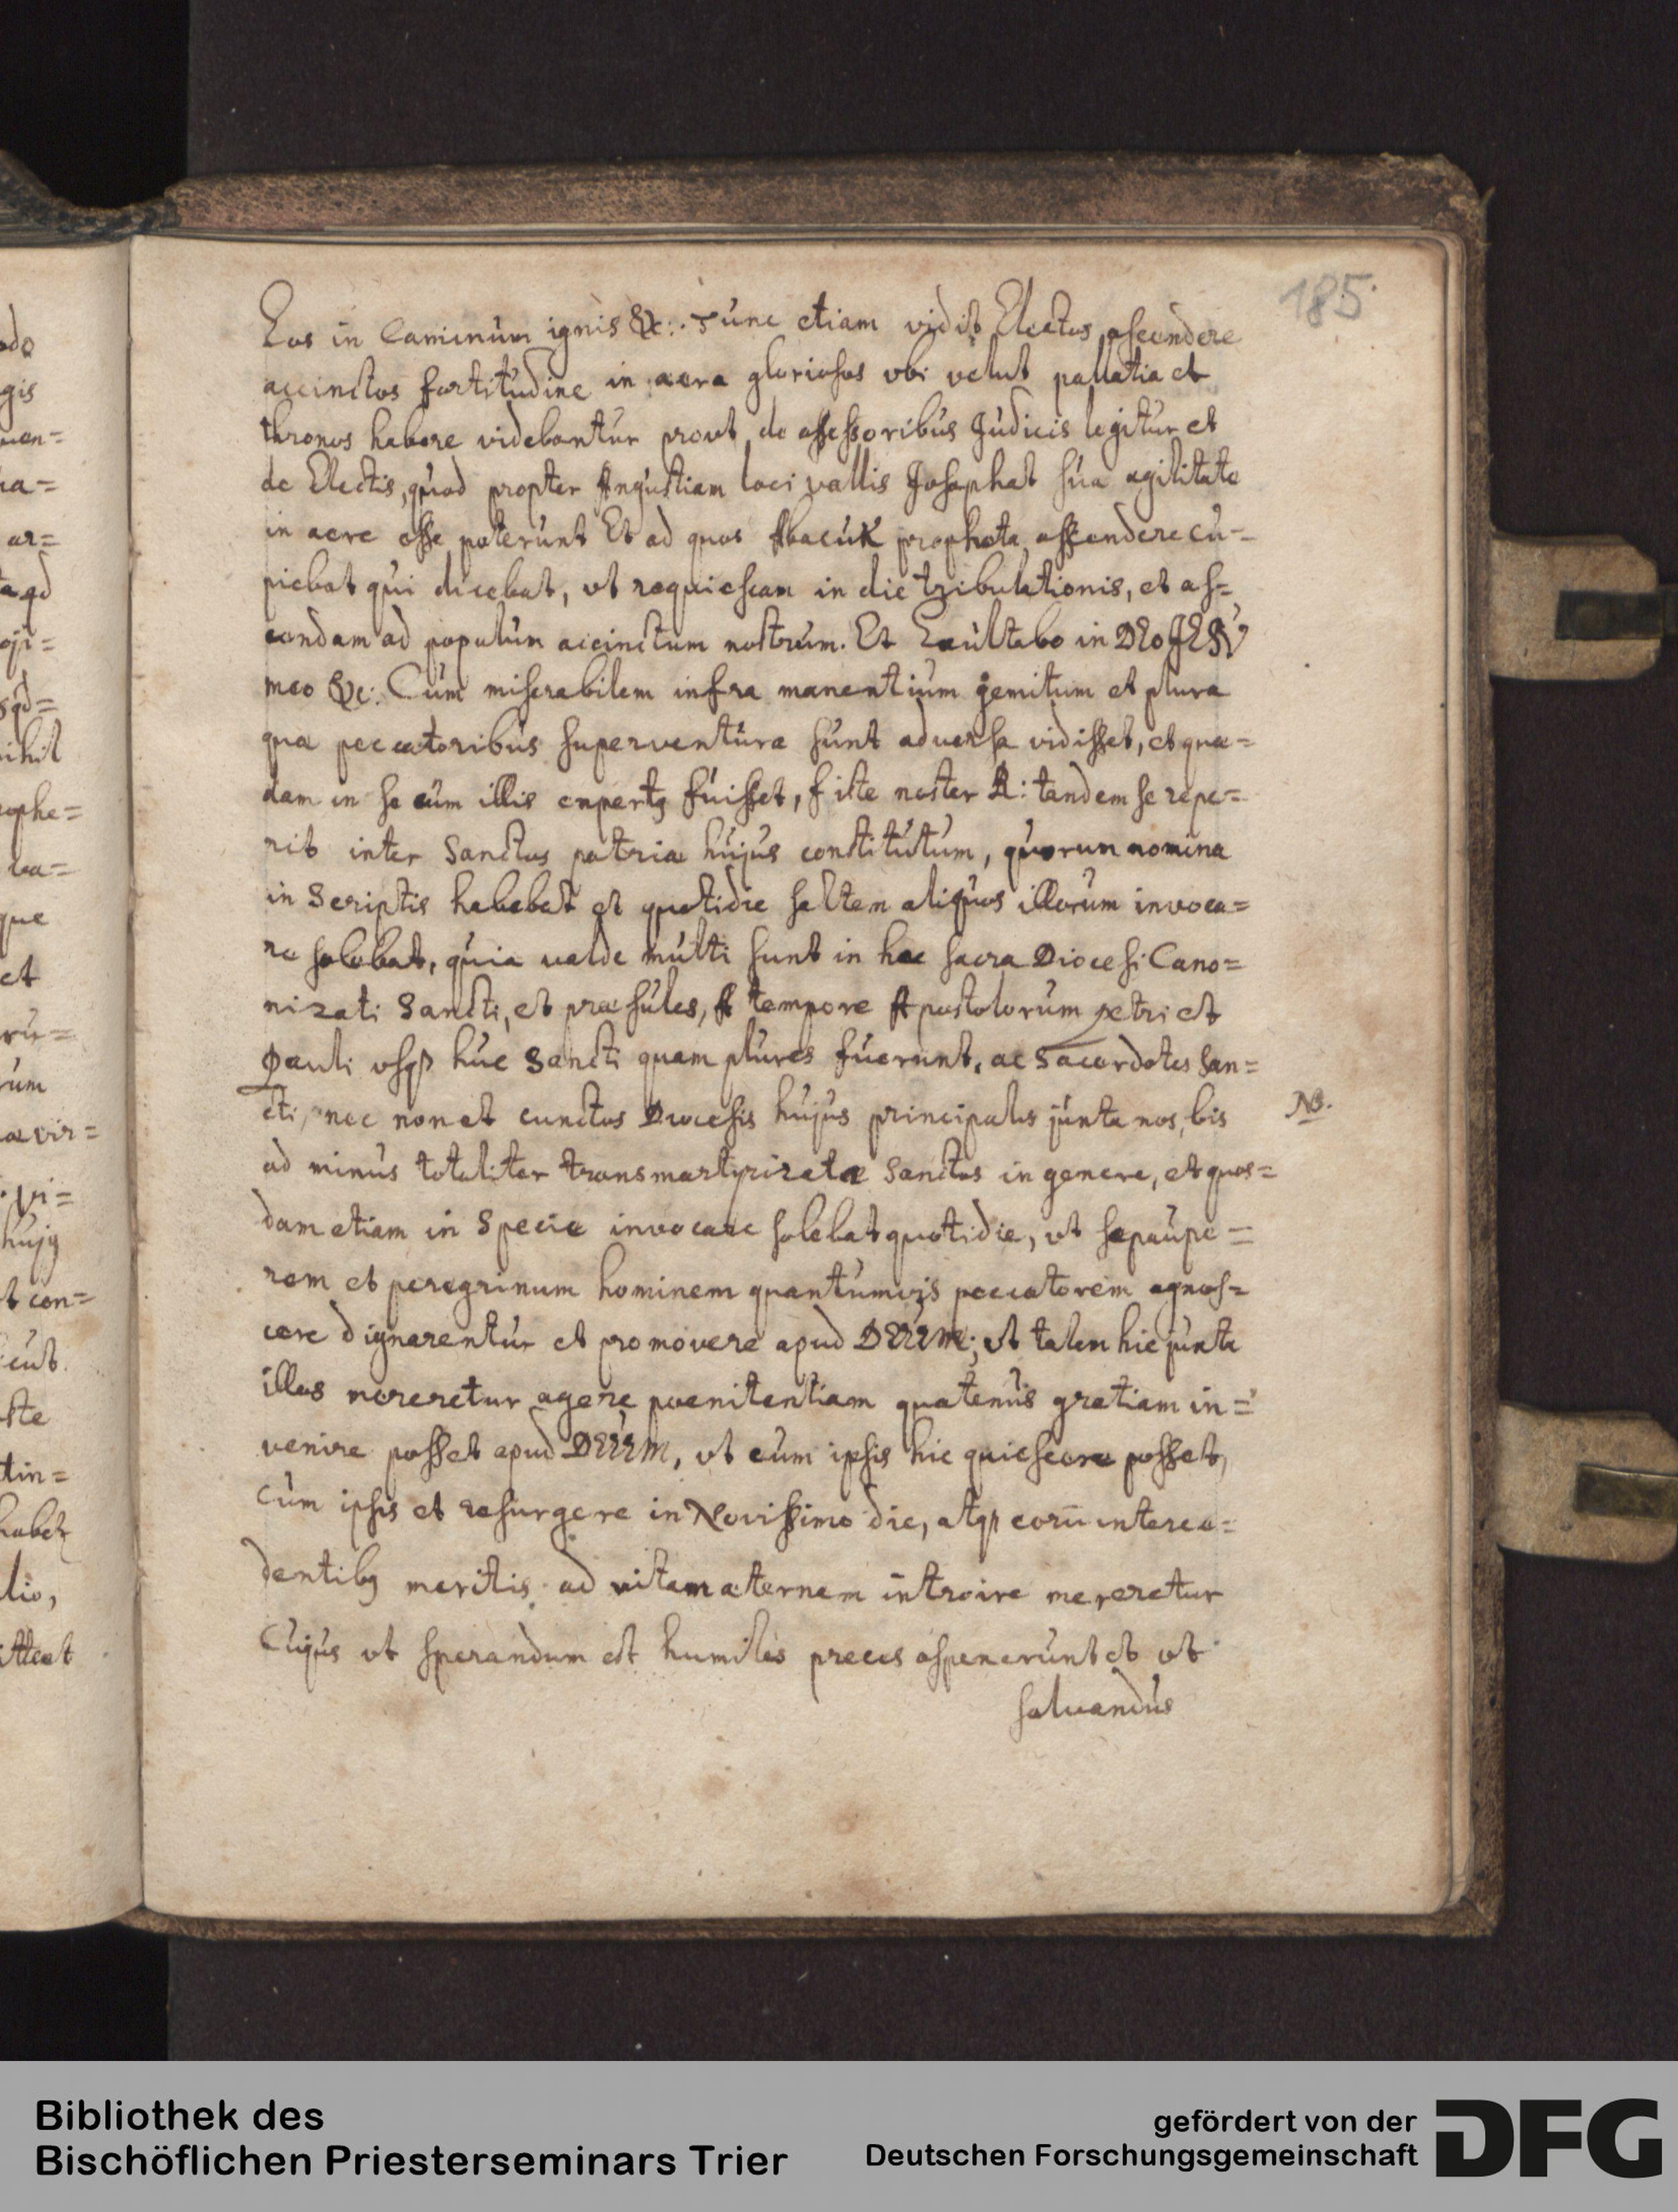 185.
Eos in Caminum ignis &c: Tunc etiam vidit Electos ascendere
accinctos fortitudine in aera gloriosos vbi velut pallatia et
thronos habere videbantur prout de assessoribus Judicis legitur et
de Electis, quod propter Angustiam loci vallis Josaphat sua agilitate
in aere esse poterunt Et ad quos Abacuk propheta assendere cu-
piebat qui dicebat, vt requiescam in die tribulationis, et as=
cendam ad populum accinctum nostrum. Et Exultabo in DEO JESV
meo &c: Cum miserabilem infra manentium gemitum et plura
quæ peccatoribus superventura sunt adversa vidisset, et quæ=
dam in se cum illis expertg fuisset, f iste noster R: tandem se repe=
rit inter Sanctos patriæ hujus constitutum, quorum nomina
in Scriptis habebat et quotidie saltem aliquos illorum invoca=
re solebat, quia valde multi sunt in hac sacra Diœcesi Cano=
nizati Sancti, et præsules, A tempore Apostolorum petri et
Pauli vsqß huc Sancti quam plures fuerunt, ac Sacerdotes San=
cti, nec non et cunctos Diœcesis hujus principales juxta nos, bis
NB.
ad minus totaliter transmartyrizatæ Sanctos in genere, et quos=
dam etiam in Specie invocare solebat quotidie, vt se paupe=
rem et peregrinum hominem quantumvis peccatorem agnos=
cere dignarentur et promovere apud DEUM; vt talem hic juxta
illos mereretur agere pœnitentiam quatenus gratiam in=
venire posset apud DEUM, vt cum ipsis hic quiescere posset,
cum ipsis et resurgere in Novissimo die, atqß eorū interce=
dentibg meritis ad vitam æternam introire mereretur
Cujus vt sperandum est humiles preces aspexerunt et vt
salvandus
Bibliothek des
Bischöflichen Priesterseminars Trier
gefördert von der
Deutschen Forschungsgemeinschaft
DFG